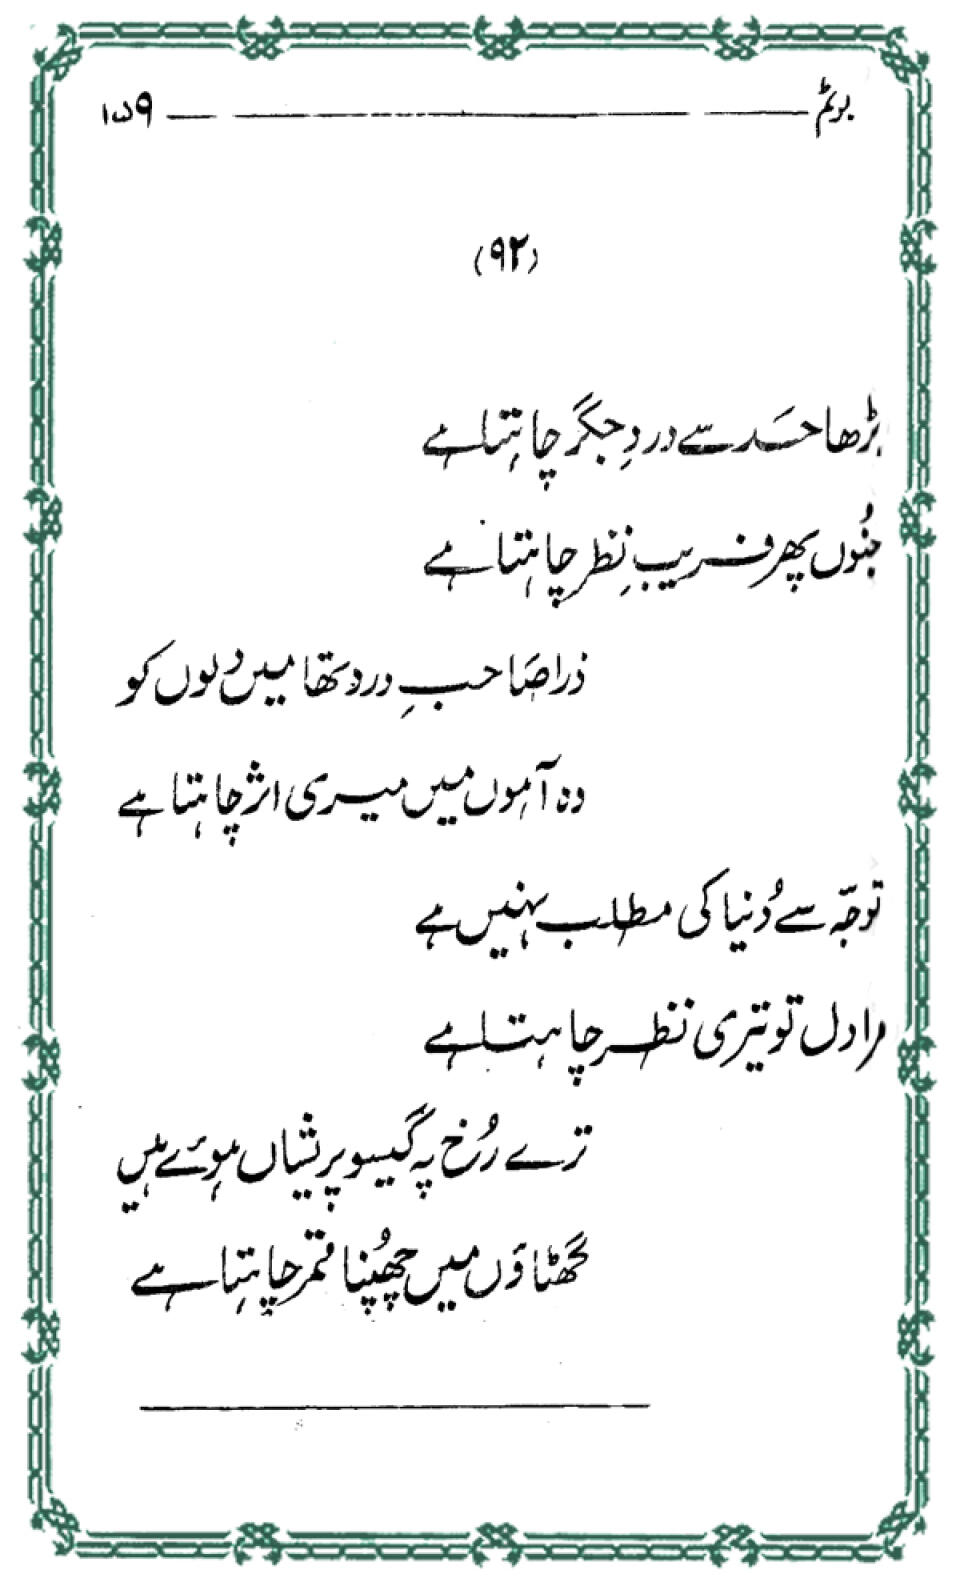 بریٹم ۱۵۹
(۹۲)
بڑھا حَد سے دردِ جگر چاہتا ہے
جُنوں پھر فریبِ نظر چاہتا ہے
ذرا صَاحبِ درد تھا میں دلوں کو
وہ آہوں میں میری اثر چاہتا ہے
توجّہ سے دُنیا کی مطلب نہیں ہے
مرا دل تو تیری نظر چاہتا ہے
ترے رُخ پہ گیسو پریشاں ہوئے ہیں
گھٹاؤں میں چھُپنا قمر چاہتا ہے